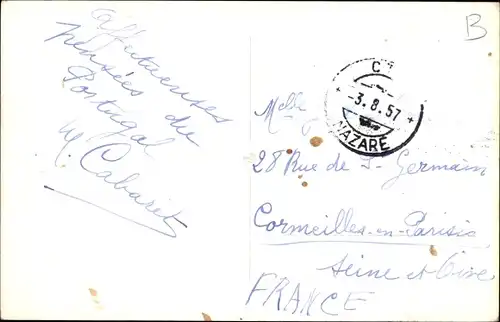 B
affectueuses
pensées du
Portugal
M. Cabaret
C
-3.8.57
NAZARÉ
Melle
28 Rue de St Germain
Cormeilles-en-Parisis
Seine et Oise
FRANCE